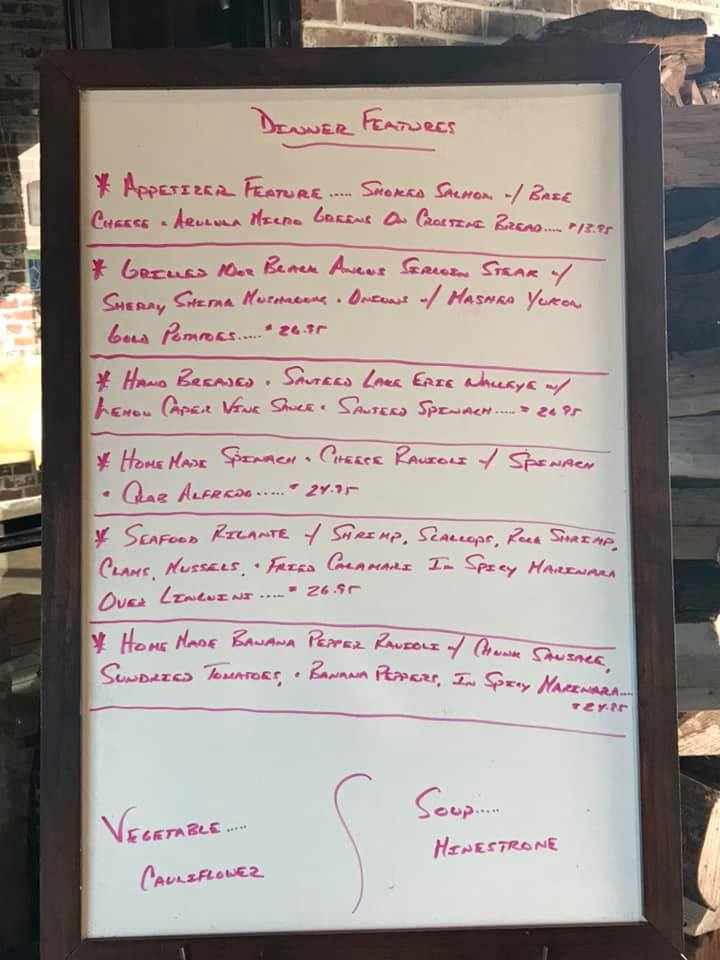 DINNER FEATURES
* APPETIZER FEATURE..... SMOKED SALMON w/ BRIE
CHEESE + ARULULA MICRO GREENS ON CROSTINI BREAD.... $13.95
* GRILLED 10oz BLACK ANGUS SIRLOIN STEAK w/
SHERRY SHITAK MUSHROOMS + ONIONS w/ MASHED YUKON
GOLD POTATOES..... $26.95
* HAND BREADED + SAUTEED LAKE ERIE WALLEYE w/
LEMON CAPER WINE SAUCE + SAUTEED SPINACH..... $26.95
* HOMEMADE SPINACH + CHEESE RAVIOLI w/ SPINACH
+ CRAB ALFREDO..... $24.95
* SEAFOOD RIGANTE w/ SHRIMP, SCALLOPS, ROCK SHRIMP,
CLAMS, MUSSELS, + FRIED CALAMARI IN SPICY MARINARA
OVER LINGUINI.... $26.95
* HOME MADE BANANA PEPPER RAVIOLI w/ CHUNK SAUSAGE,
SUNDRIED TOMATOES, + BANANA PEPPERS, IN SPICY MARINARA....
$24.95
VEGETABLE.....
CAULIFLOWER
SOUP.....
MINESTRONE